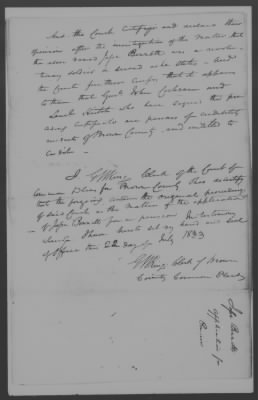 And the Court certify and declare their
opinion after the investigation of the matter that
the above named Jesse Barrett was a revolu-
tionary soldier & served as he states - And
the Court further certify that it appears
to them that Genl John Cochran and
who have signed the pre-
ceding certificate are persons of credibility
residents of Brown County and entitled to
credit -
I G W King Clerk of the Court of
Common Pleas for Brown County do certify
that the foregoing contains the original proceedings
of said Court in the matter of the application
of Jesse Barrett for a pension In testimony
whereof I have hereunto set my hand and seal
of Office this 22 day of July 1833
G W King Clerk of Brown
County Common Pleas
Jesse Barrett
application for
Pension